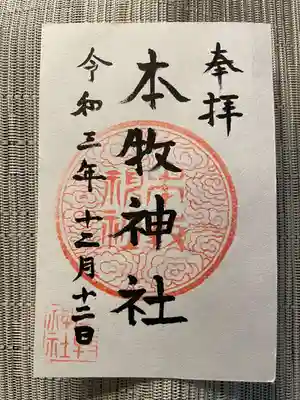 奉拝
本牧神社
令和三年十二月十二日